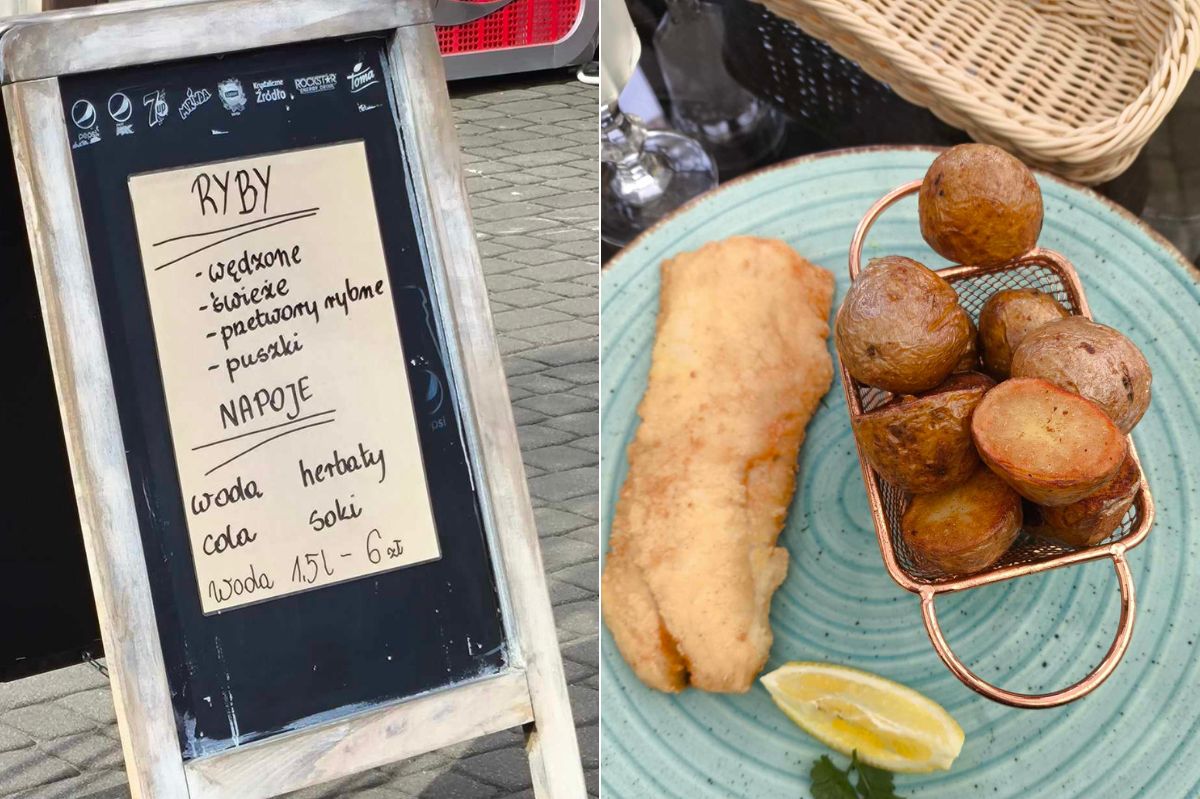 pepsi
7up
MIRINDA
Krystaliczne
Źródło
ROCKSTAR
ENERGY DRINK
Toma
RYBY
- wędzone
- świeże
- przetwory rybne
- puszki
NAPOJE
woda herbaty
cola soki
woda 1,5l - 6 zł